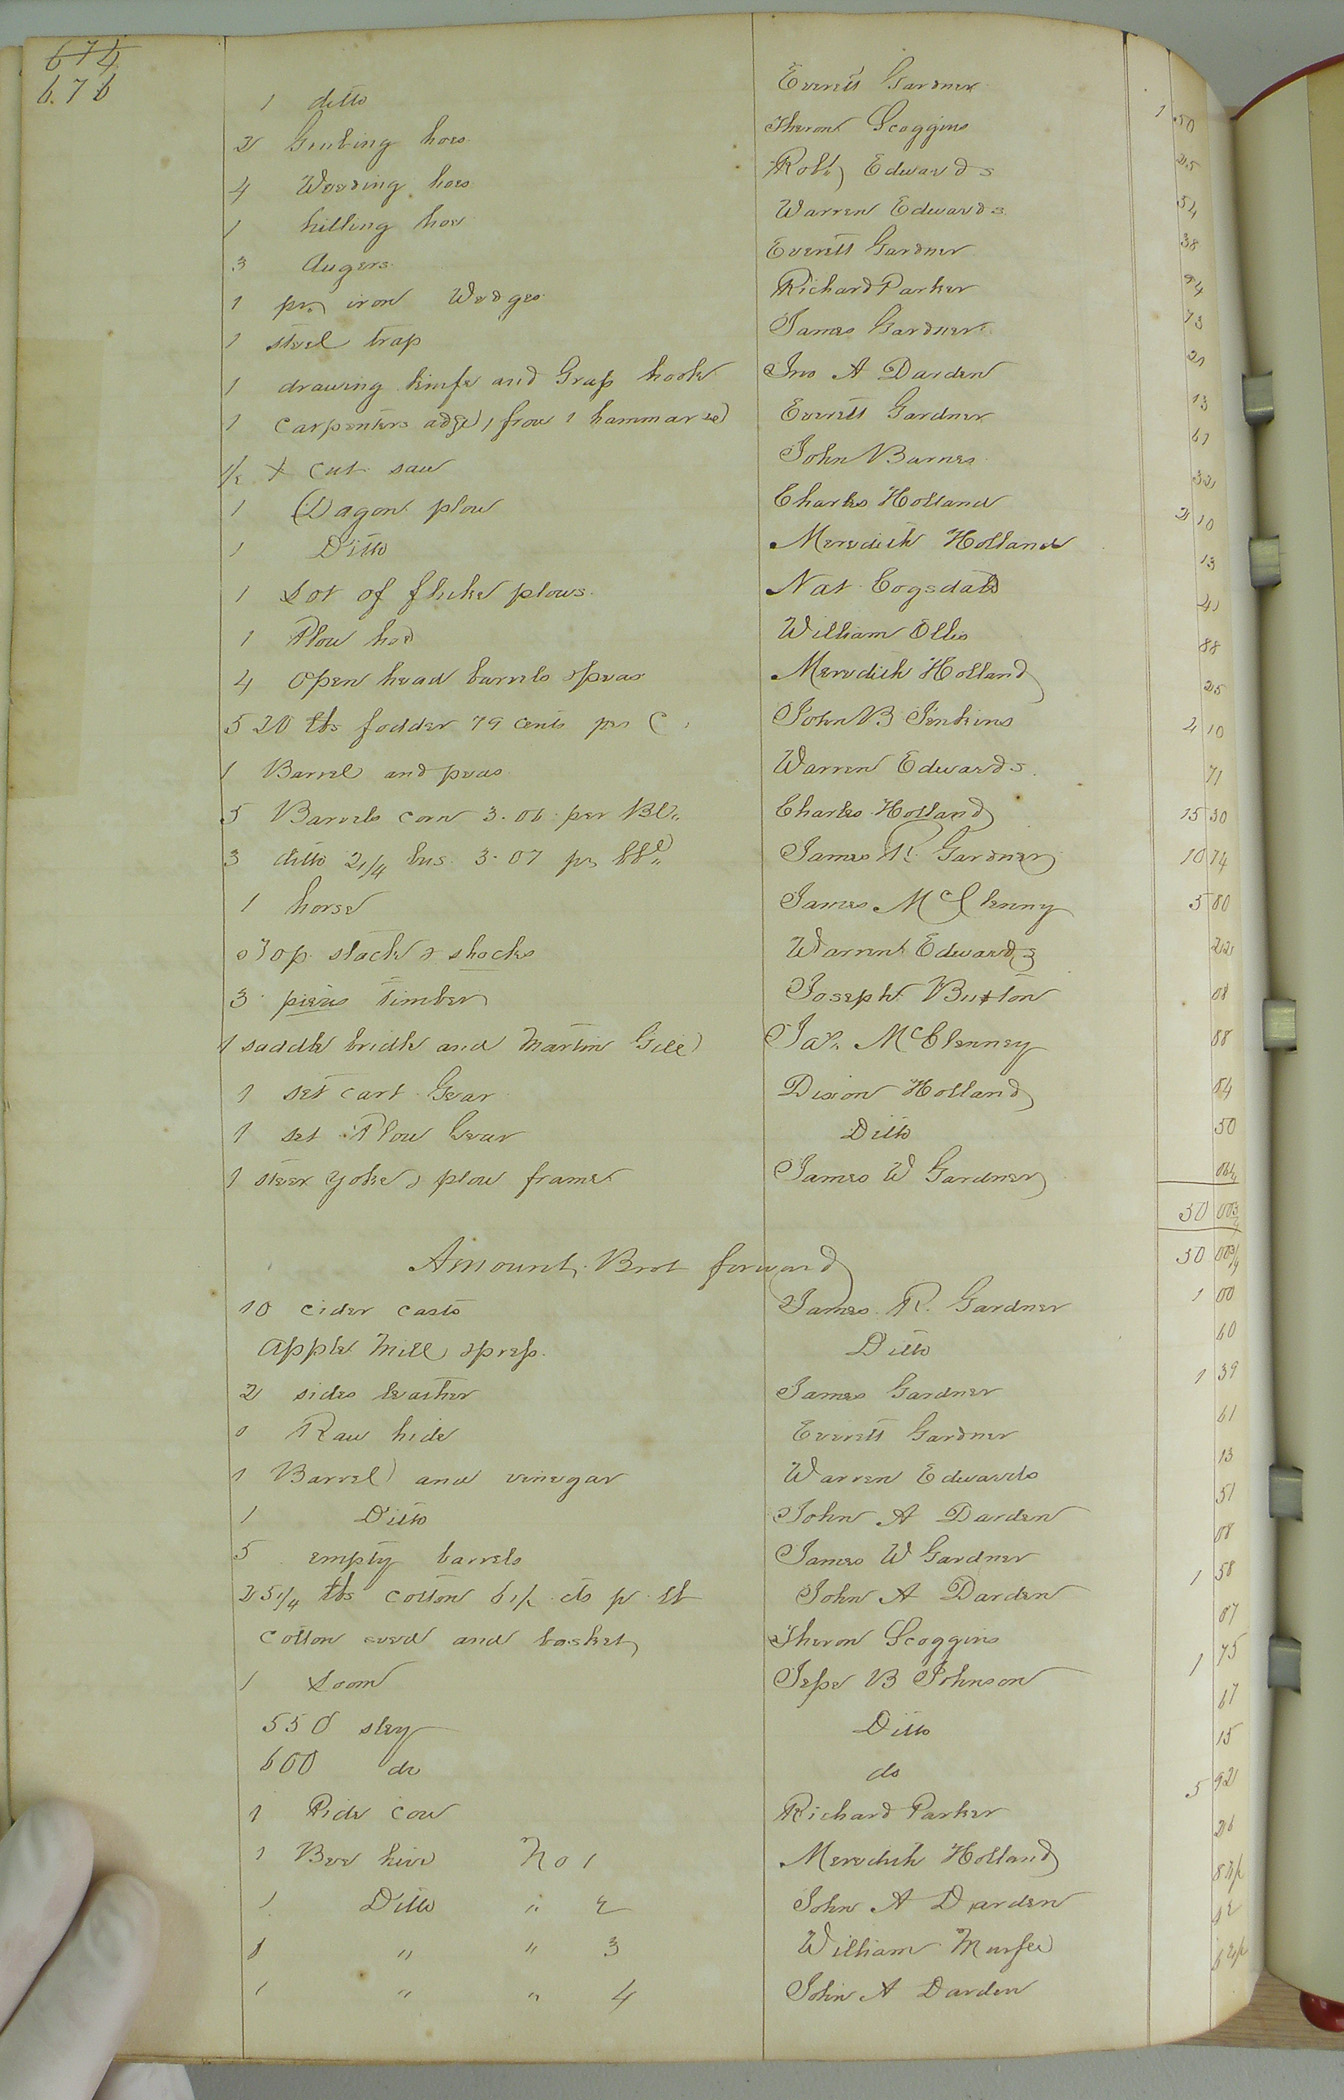 674
676
1 ditto Everett Gardner 1 50
2 Grubing hoes Theron Scoggins 25
4 Weeding hoes Robt Edwards 54
1 hilling hoe Warren Edwards 38
3 Augers Everett Gardner 94
1 pr iron Wedges Richard Parker 73
1 steel trap James Gardner 21
1 drawing knife and Grass hook Jno A Darden 13
1 carpenters adge 1 frow 1 hammar &c Everett Gardner 61
1/2 X cut saw John Barnes 32
1 Dagon plow Charles Holland 2 10
1 Ditto Meredith Holland 13
1 Lot of fluke plows Nat Cogsdale 41
1 Plow hoe William Ellis 88
4 open head barrels & peas Meredith Holland 25
520 lbs fodder 79 cents per C John B Jenkins 4 10
1 Barrel and peas Warren Edwards 71
5 Barrels corn 3.06 per Bl Charles Holland 15 30
3 ditto 2 1/4 bus 3.07 pr bbl James R Gardner 10 74
1 horse James McClenny 5 80
Top stack & shocks Warren Edwards 22
3 pieces timber Joseph Buxton 08
1 saddle bridle and Martin Gill Jas. McClenney 88
1 set cart Gear Dixon Holland 54
1 set Plow Gear Ditto 50
1 steer yoke & plow frame James W Gardner 06 1/4
50 00 3/4
Amount Brot forward 50 00 3/4
10 cider casts James R. Gardner 1 00
Apple Mill & press Ditto 60
2 sides leather James Gardner 1 39
Raw hide Everett Gardner 61
1 Barrel and vinegar Warren Edwards 13
1 Ditto John A Darden 51
5 empty barrels James W Gardner 08
25 1/4 lbs cotton 6 1/4 cts pr lb John A Darden 1 58
cotton seed and basket Theron Scoggins 07
1 Loom Jesse B Johnson 1 75
550 sley Ditto 67
600 do do 15
1 Pide cow Richard Parker 5 92
1 Bee hive No 1 Meredith Holland 26
1 Ditto " 2 John A Darden
1 " " 3 William Murfee
1 " " 4 John A Darden